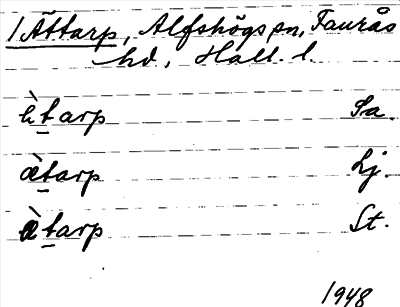 1 Ättarp, Alfshögs sn, Faurås
hd, Hall. l.
ètarp Sa.
æ̀tarp Lj.
àtarp St.
1948